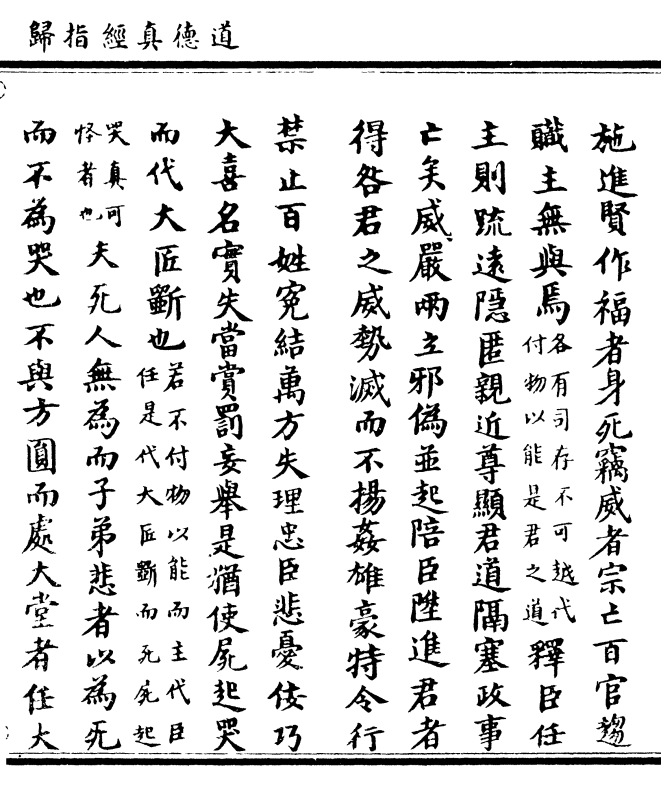 道德真經指歸
施進賢作福者身死竊威者宗亡百官趨
職主無與焉各有司存不可越代付物以能是君之道釋臣任
主則疏遠隱匿親近尊顯君道隔塞政事
亡矣威嚴兩立邪偽並起陪臣陞進君者
得咎君之威勢滅而不揚姦雄豪特令行
禁止百姓冤結萬方失理忠臣悲憂佞巧
大喜名實失當賞罰妄舉是猶使屍起哭
而代大匠斲也若不付物以能而主代臣任是代大匠斲而死屍起
哭真可怪者也夫死人無為而子弟悲者以為死
而不為哭也不與方圓而處大堂者任大